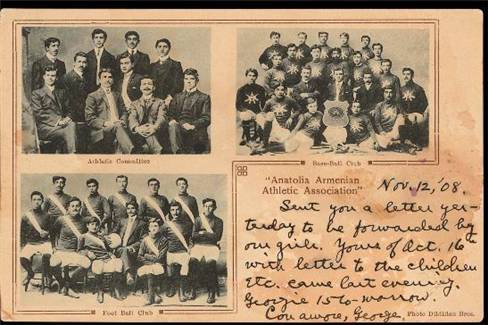 Athletic Committee
Base-Ball Club
"Anatolia Armenian
Athletic Association"
Nov, 12, '08.
Sent you a letter yes-
terday to be forwarded by
our girls. Yours of Oct. 16th
with letter to the children
etc. came last evening.
Georgie 15 to-morrow.
George.
Foot Ball Club
Photo Dildilian Bros.